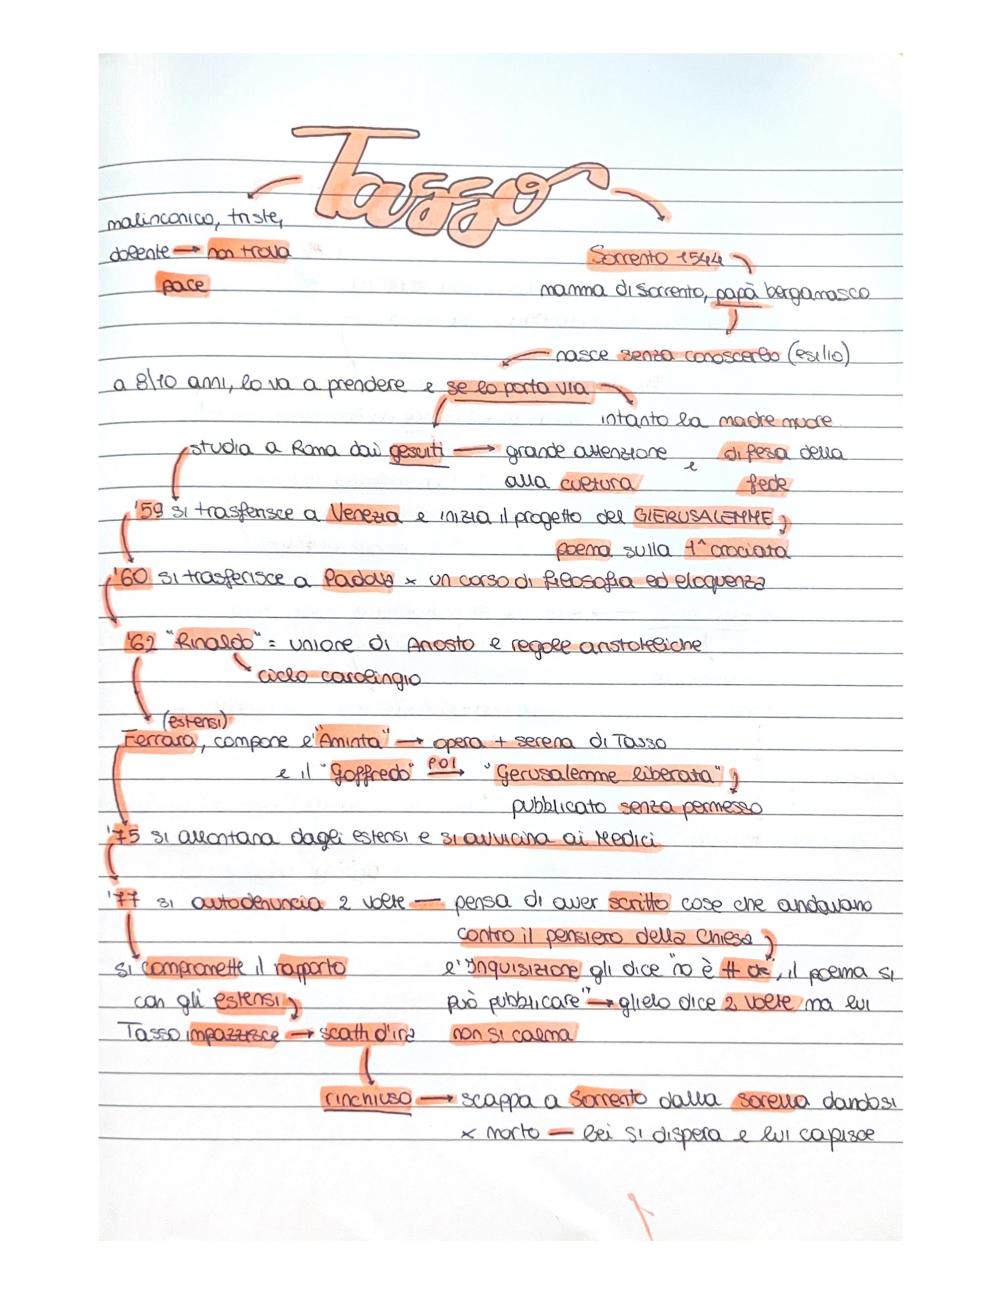 Tasso
malinconico, triste,
dolente → non trova
pace
Sorrento 1544
mamma di Sorrento, papà bergamasco
nasce senza conoscerlo (esilio)
a 8\10 anni, lo va a prendere e se lo porta via
intanto la madre muore
studia a Roma dai gesuiti → grande attenzione e difesa della
alla cultura fede
'59 si trasferisce a Venezia e inizia il progetto del GIERUSALEMME
poema sulla 1^ crociata
'60 si trasferisce a Padova x un corso di filosofia ed eloquenza
'62 "Rinaldo" = unione di Ariosto e regole aristoteliche
ciclo carolingio
(estensi)
Ferrara, compone l'"Aminta" → opera + serena di Tasso
e il "Goffredo" POI → "Gerusalemme liberata"
pubblicato senza permesso
'75 si allontana dagli estensi e si avvicina ai Medici
'77 si autodenuncia 2 volte — pensa di aver scritto cose che andavano
contro il pensiero della Chiesa
si compromette il rapporto l'Inquisizione gli dice "no è tt ok, il poema si
con gli estensi può pubblicare" → glielo dice 2 volte ma lui
Tasso impazzisce → scatti d'ira non si calma
rinchiuso → scappa a Sorrento dalla sorella dandosi
x morto — lei si dispera e lui capisce